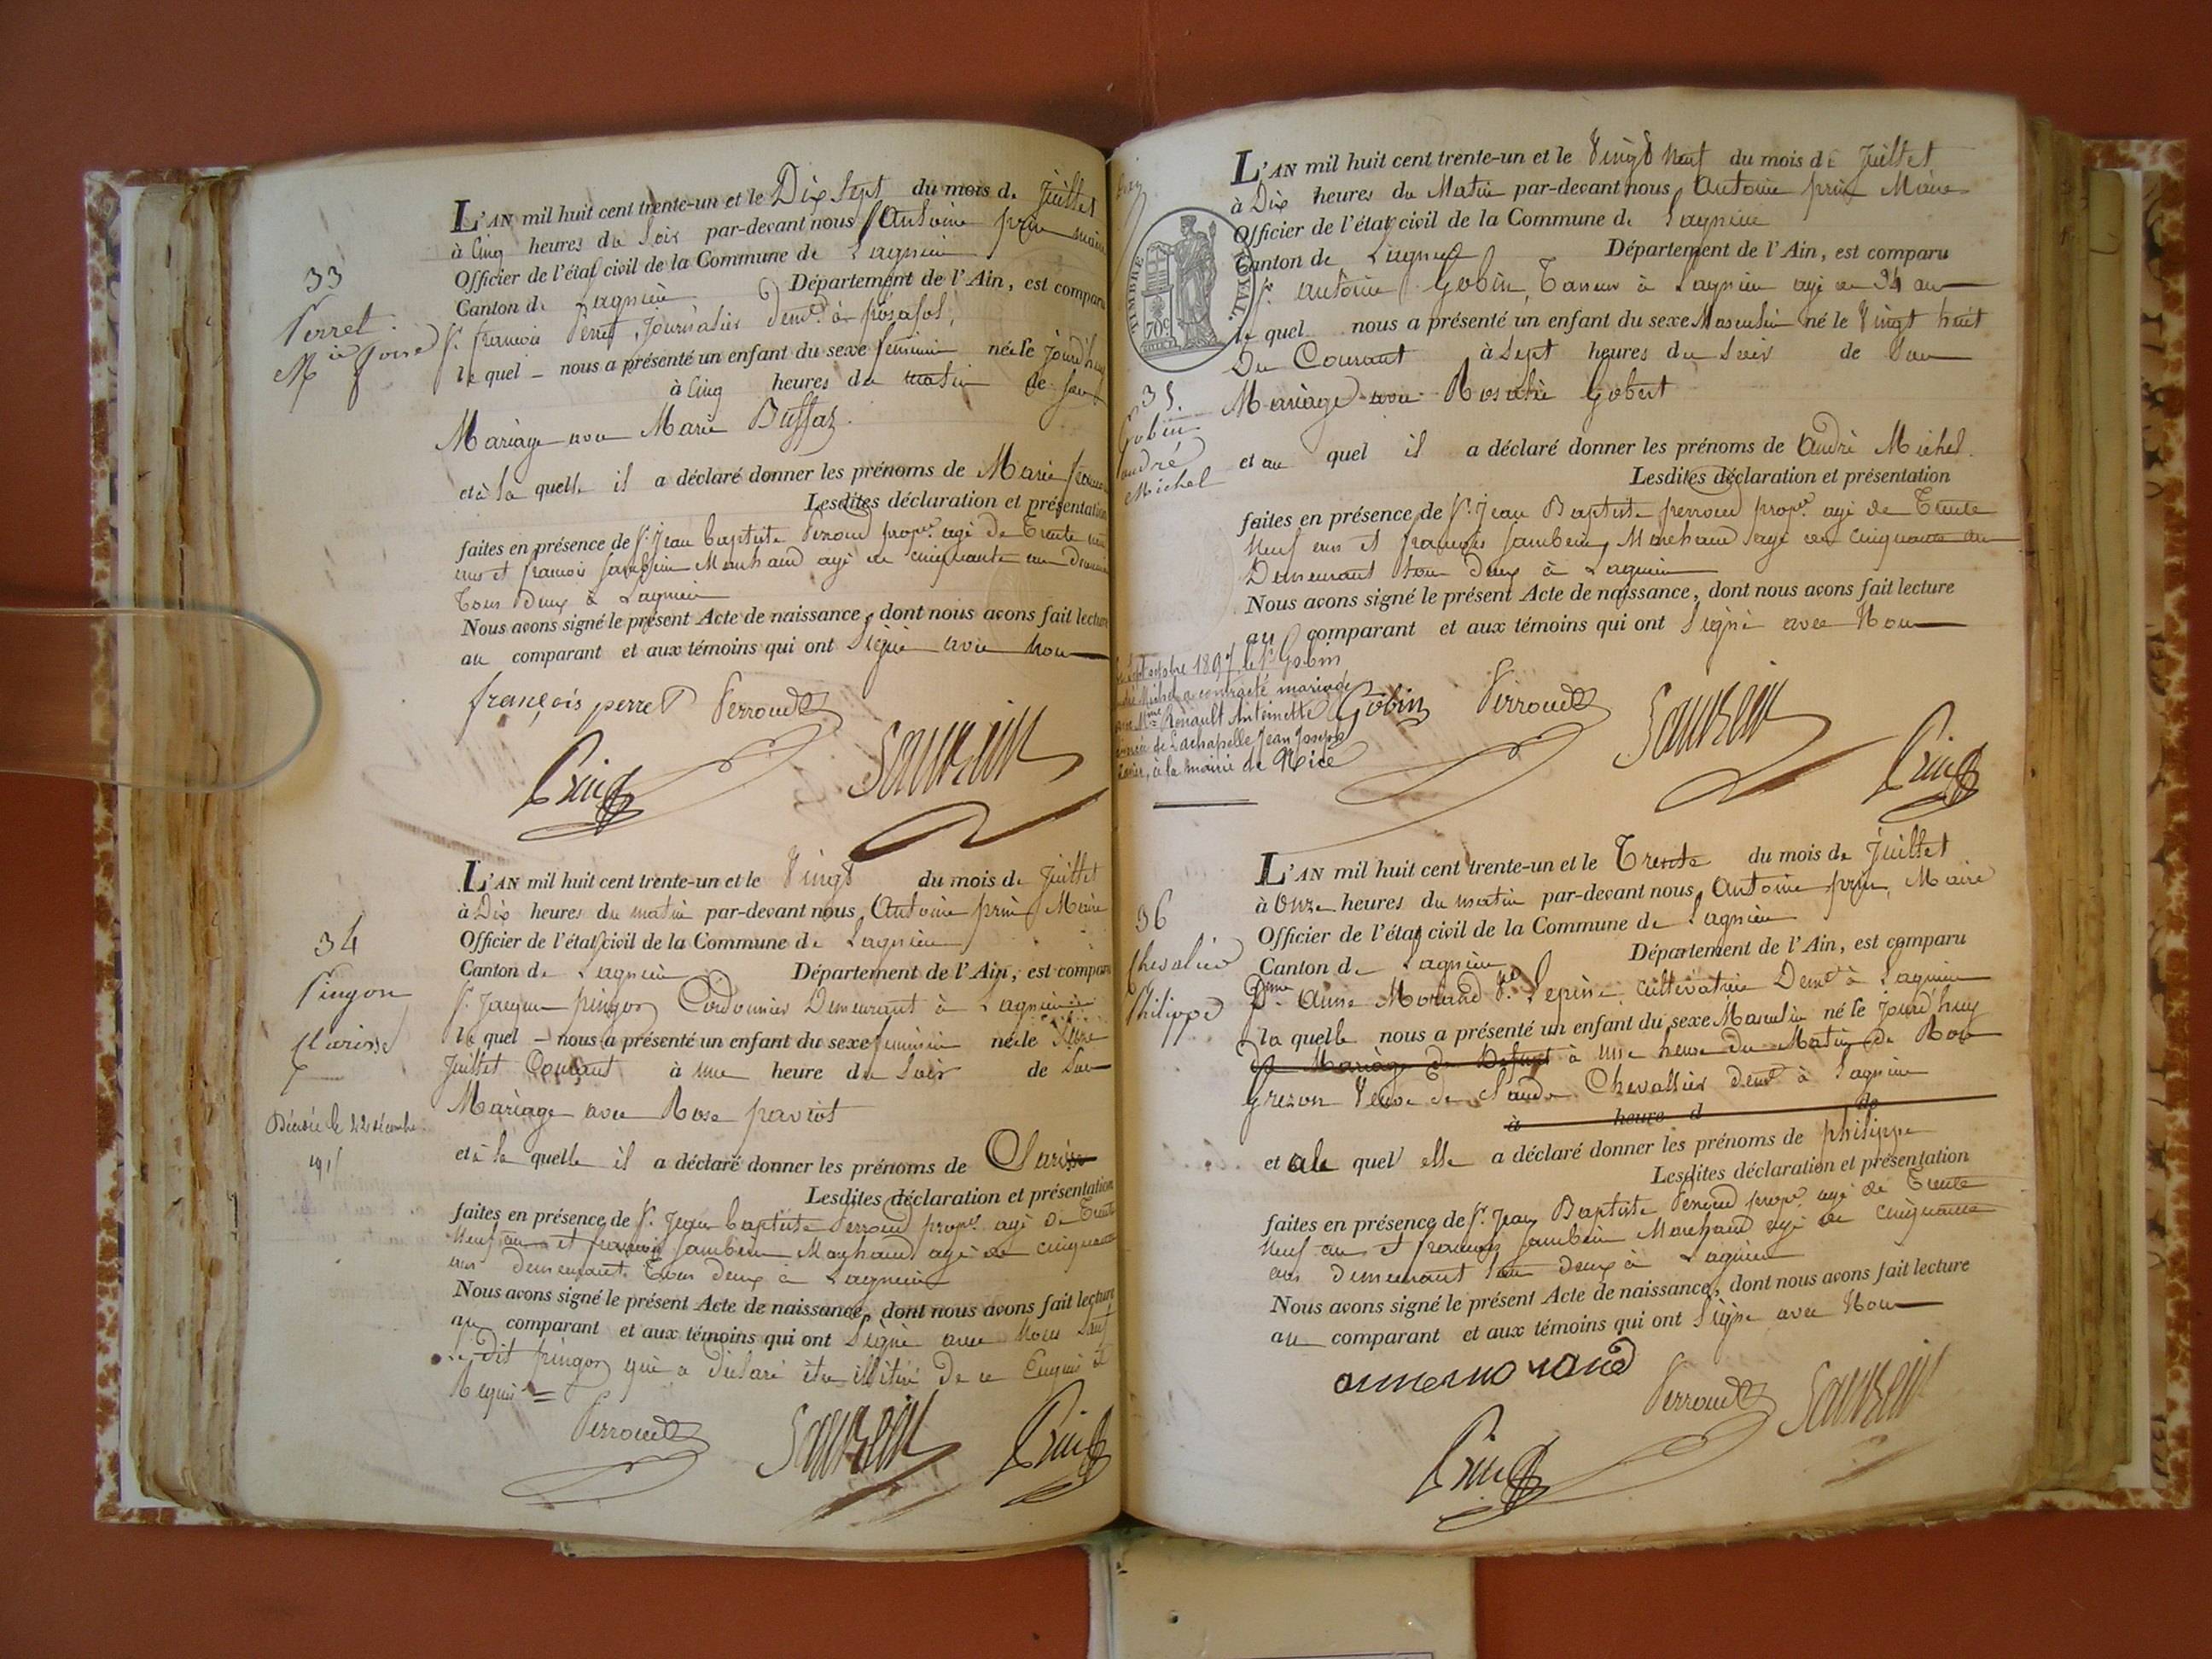 33
Perret
M.ie Foise
L'AN mil huit cent trente-un et le Dix Sept du mois de Juillet
à Cinq heures du Soir par-devant nous Antoine prin maire
Officier de l'état civil de la Commune de Lagnieu
Canton de Lagnieu Département de l'Ain, est comparu
Sr. francois Perret, Journalier demt. à posafol,
le quel nous a présenté un enfant du sexe feminin née le Jourd'huy
à Cinq heures du matin de Son
Mariage avec Marie Buffaz.
et à la quelle il a déclaré donner les prénoms de Marie
Lesdites déclaration et présentation
faites en présence de Sr. Jean baptiste Perroud propre. agé de Trente neuf
ans et francois Jambein Marchand agé de cinquante ans
Tous deux à Lagnieu
Nous avons signé le présent Acte de naissance, dont nous avons fait lecture
au comparant et aux témoins qui ont Signé avec nous
françois perret Perroud
Prin
34
Pingon
Clarisse
Décédée le 22 décembre
191
L'AN mil huit cent trente-un et le Vingt du mois de Juillet
à Dix heures du matin par-devant nous Antoine prin Maire
Officier de l'état civil de la Commune de Lagnieu
Canton de Lagnieu Département de l'Ain, est comparu
Sr. Jacques pingon Cordonnier Demeurant à Lagnieu
le quel nous a présenté un enfant du sexe feminin née le
Juillet Courant à une heure du Soir de Son
Mariage avec Rose paviot
et à la quelle il a déclaré donner les prénoms de Clarisse
Lesdites déclaration et présentation
faites en présence de Sr. Jean baptiste Perroud propre. agé de Trente
Neuf ans et francois Jambein Marchand agé de cinquante
ans demeurant Tous deux à Lagnieu
Nous avons signé le présent Acte de naissance, dont nous avons fait lecture
au comparant et aux témoins qui ont Signé avec Nous Sauf
Le dit pingon qui a déclaré être illitéré De ce Enquis et
Requis
Perroud
Prin
TIMBRE ROYAL.
70c
35.
Gobin
andré
Michel
L'AN mil huit cent trente-un et le Vingt Neuf du mois de Juillet
à Dix heures du Matin par-devant nous Antoine prin Maire
Officier de l'état civil de la Commune de Lagnieu
Canton de Lagnieu Département de l'Ain, est comparu
Sr. antoine Gobin, Taneur à Lagnieu agé de 34 ans
le quel nous a présenté un enfant du sexe Masculin né le Vingt huit
Du Courant à Sept heures du Soir de Son
Mariage avec Rosalie Gobert
et au quel il a déclaré donner les prénoms de André Michel.
Lesdites déclaration et présentation
faites en présence de Sr. Jean Baptiste perroud propre. agé de Trente
Neuf ans et francois Jambein, Marchand agé de cinquante ans
Demeurant tous deux à Lagnieu
Nous avons signé le présent Acte de naissance, dont nous avons fait lecture
au comparant et aux témoins qui ont Signé avec Nous
octobre 1897 le Sr Gobin
Michel a contracté mariage
avec Mme Renault Antoinette
divorcée de Lachapelle Jean Joseph
à la mairie de Nice
Gobin Perroud
Prin
36
Chevalier
Philippe
L'AN mil huit cent trente-un et le Trente du mois de Juillet
à Onze heures du matin par-devant nous Antoine prin, Maire
Officier de l'état civil de la Commune de Lagnieu
Canton de Lagnieu Département de l'Ain, est comparu
Dme Anne Morand Ve. Lepine, Cultivatrice Demt. à Lagnieu
la quelle nous a présenté un enfant du sexe Masculin né le Jourd'huy
de Mariage de à une heure du Matin de Rose
Grezon Veuve de Claude Chevallier demt. à Lagnieu
à heure d de
et ale quel elle a déclaré donner les prénoms de philippe
Lesdites déclaration et présentation
faites en présence de Sr. Jean Baptiste Perroud propre. agé de Trente
Neuf ans et francois Jambein Marchand agé de cinquante
ans Demeurant tous deux à Lagnieu
Nous avons signé le présent Acte de naissance, dont nous avons fait lecture
au comparant et aux témoins qui ont Signé avec Nous
anne morand
Perroud
Prin